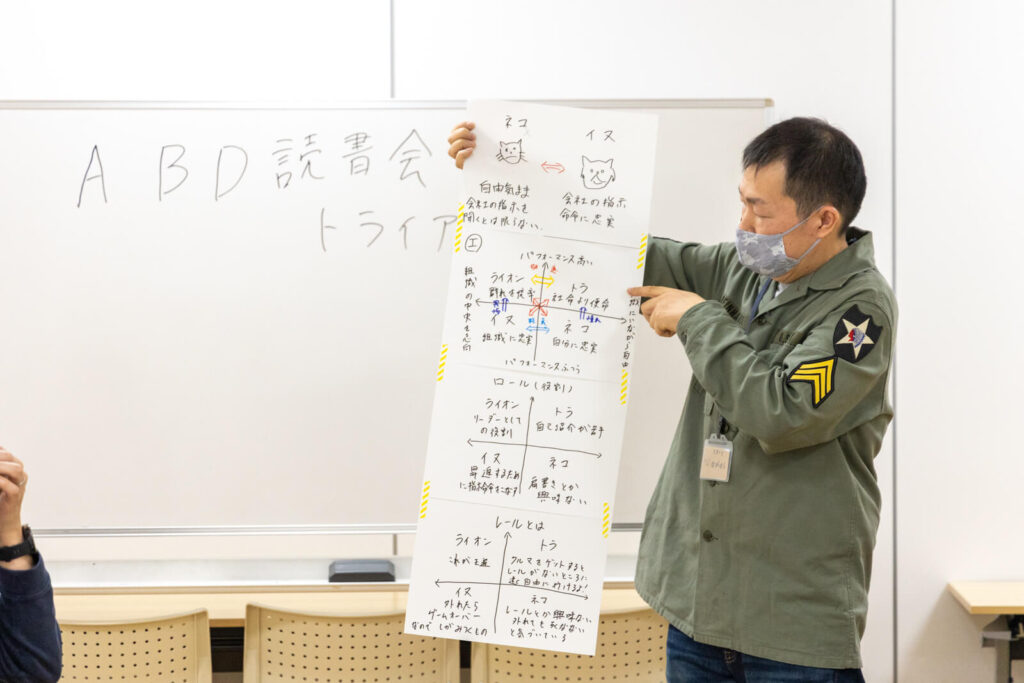 ABD読書会
トライア
ネコ
イヌ
自由気まま
会社の指示を
聞くとは限らない。
会社の指示
命令に忠実
パフォーマンス高い
組織の中央を志向
ライオン
群れを
トラ
社命より使命
イヌ
組織に忠実
ネコ
自分に忠実
にいながら自由
パフォーマンスふつう
ロール(役割)
ライオン
リーダーとして
の役割
トラ
自己紹介が苦手
イヌ
昇進するため
に指示命令をこなす
ネコ
肩書きとか
興味ない
レールとは
ライオン
これが王道
トラ
クルマをゲットすると
レールがないところに
も自由に行けるよ!
イヌ
外れたら
ゲームオーバー
なので しがみつくもの
ネコ
レールとか興味ない
外れても死なない
と気づいている